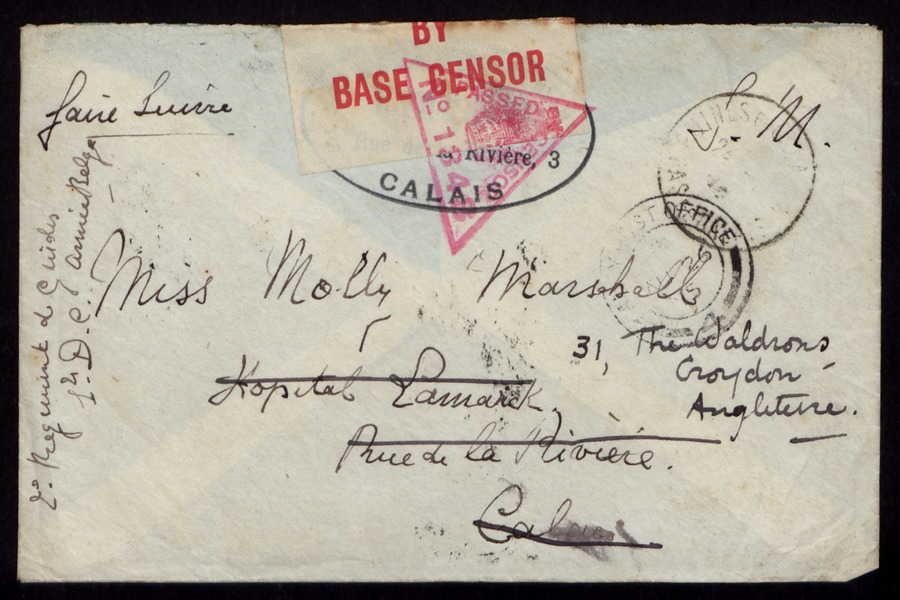 BY
BASE CENSOR
PASSED BY
CENSOR
No 1848
la Rivière, 3
CALAIS
Faire Suivre
S. M.
OFFICE
Miss Molly Marshall
Hopital Lamarck,
Rue de la Rivière.
Calais
31, The Waldrons
Croydon
Angleterre.
2e Regiment de Guides
1e D. C. Armée Belge